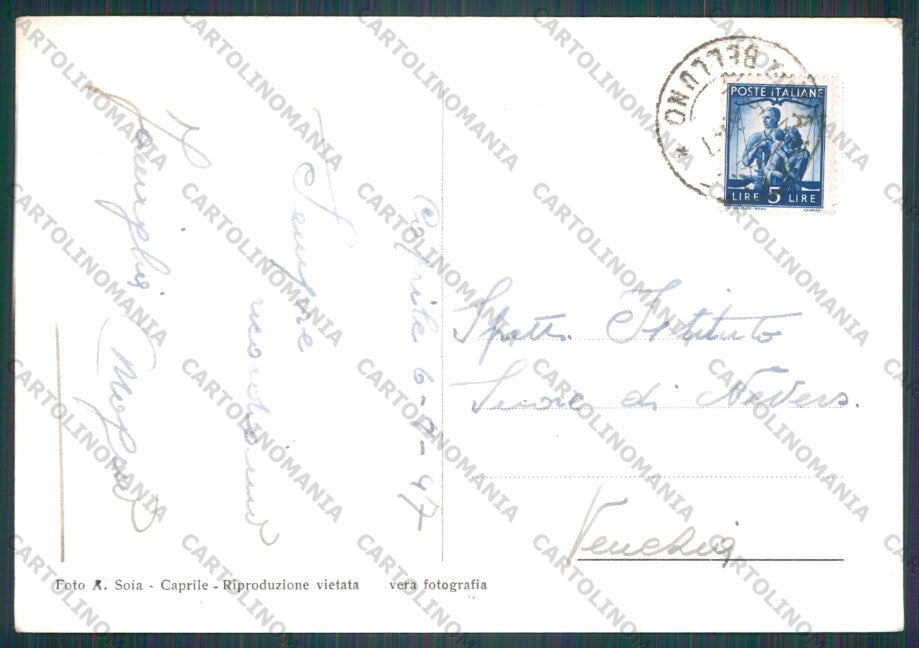 Caprile 6-8-47
Sempre
ricordano
Famiglia
BELLUNO
POSTE ITALIANE
LIRE 5 LIRE
Spett. Istituto
Suore di Nevers.
Venezia
Foto A. Soia - Caprile - Riproduzione vietata vera fotografia
CARTOLINOMANIA